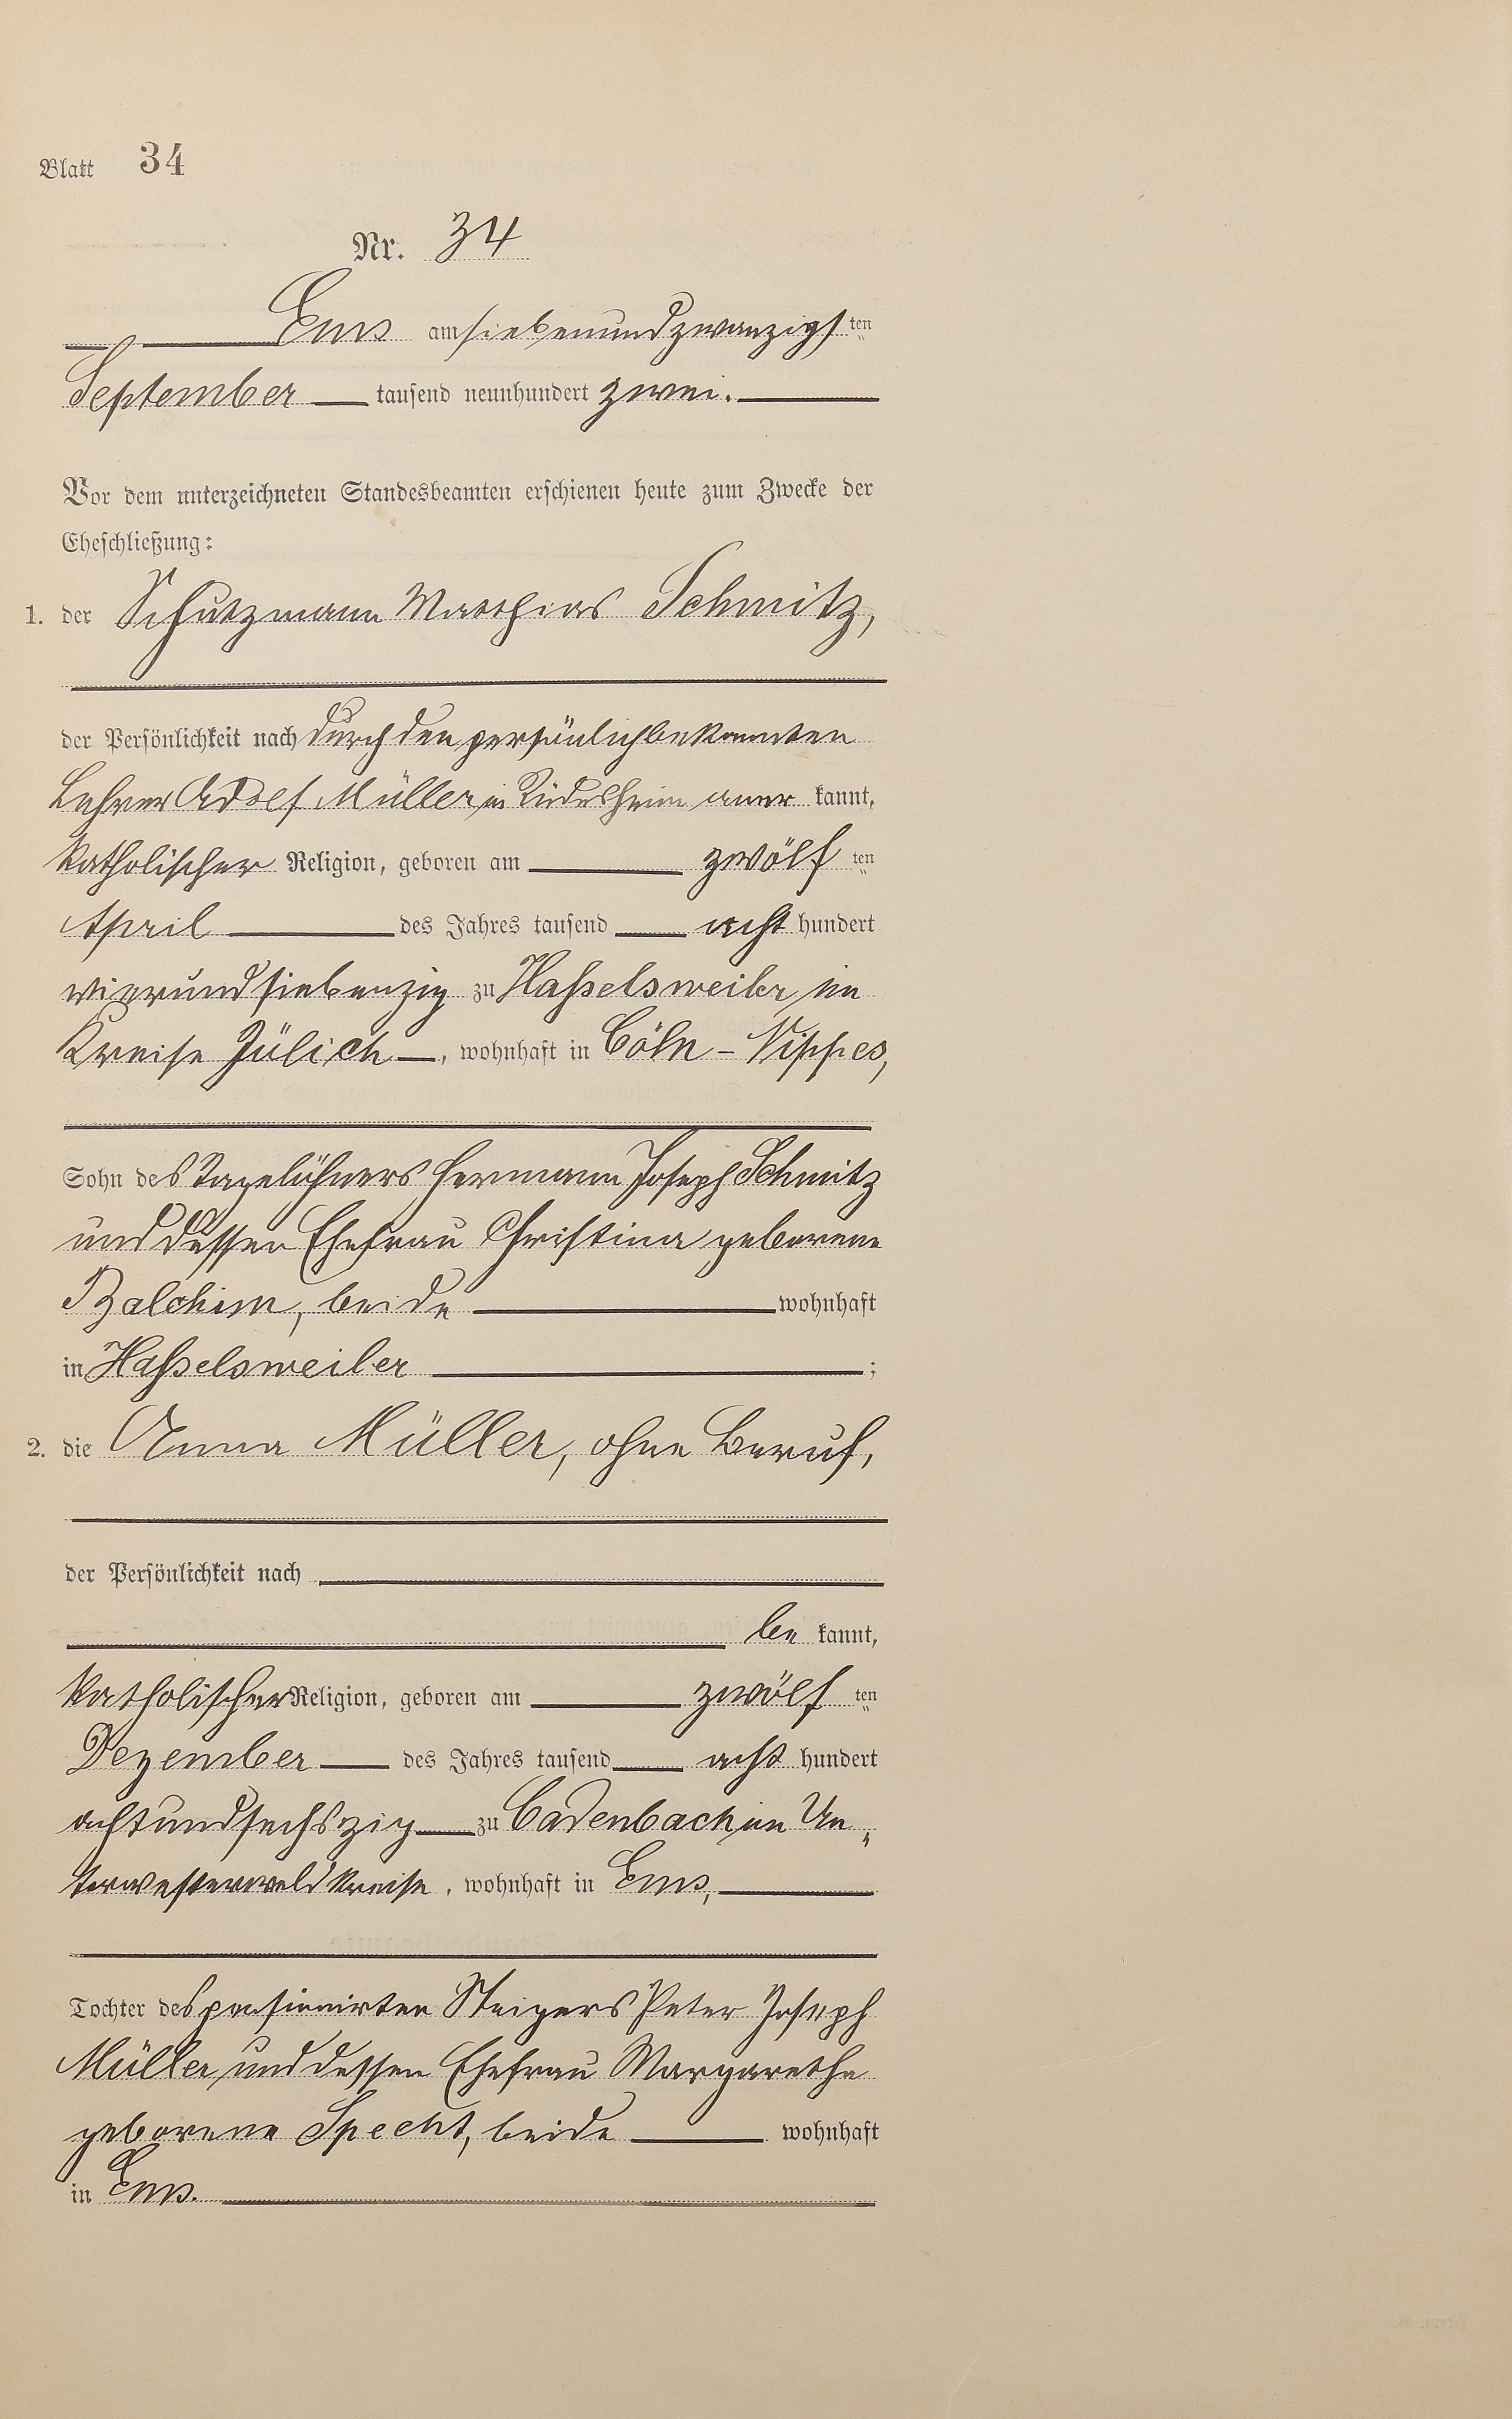 Blatt 34
Nr. 34
Ems am siebenundzwanzigsten
September tausend neunhundert zwei.
Vor dem unterzeichneten Standesbeamten erschienen heute zum Zwecke der
Eheschließung:
1. der Schutzmann Matthias Schmitz,
der Persönlichkeit nach durch den persönlich bekannten
Lehrer Adolf Müller in Rüdesheim anerkannt,
katholischer Religion, geboren am zwölften
April des Jahres tausend acht hundert
vierundsiebenzig zu Haßelsweiler im
Kreise Jülich, wohnhaft in Cöln-Nippes,
Sohn des Tagelöhners Hermann Joseph Schmitz
und dessen Ehefrau Christina geborene
beide wohnhaft
in Haßelsweiler;
2. die Anna Müller, ohne Beruf,
der Persönlichkeit nach
bekannt,
katholischer Religion, geboren am zwölften
Dezember des Jahres tausend acht hundert
achtundsechszig zu Cadenbach im Un„
terwesterwaldkreise, wohnhaft in Ems,
Tochter des pensionirten Steigers Peter Joseph
Müller und dessen Ehefrau Margarethe
geborene Specht, beide wohnhaft
in Ems.